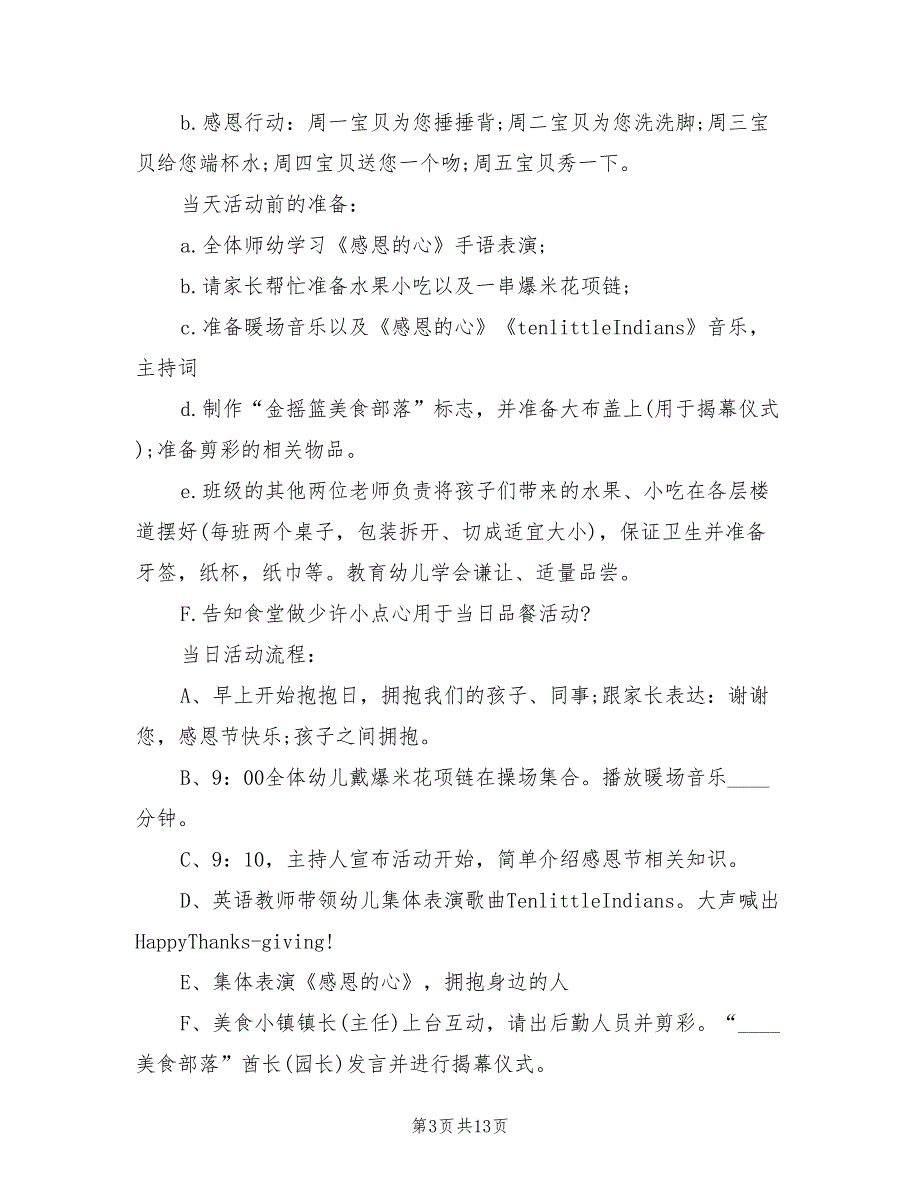 b.感恩行动：周一宝贝为您捶捶背;周二宝贝为您洗洗脚;周三宝
贝给您端杯水;周四宝贝送您一个吻;周五宝贝秀一下。
当天活动前的准备：
a.全体师幼学习《感恩的心》手语表演;
b.请家长帮忙准备水果小吃以及一串爆米花项链;
c.准备暖场音乐以及《感恩的心》《tenlittleIndians》音乐，
主持词
d.制作“金摇篮美食部落”标志，并准备大布盖上(用于揭幕仪式
);准备剪彩的相关物品。
e.班级的其他两位老师负责将孩子们带来的水果、小吃在各层楼
道摆好(每班两个桌子，包装拆开、切成适宜大小)，保证卫生并准备
牙签，纸杯，纸巾等。教育幼儿学会谦让、适量品尝。
F.告知食堂做少许小点心用于当日品餐活动?
当日活动流程：
A、早上开始抱抱日，拥抱我们的孩子、同事;跟家长表达：谢谢
您，感恩节快乐;孩子之间拥抱。
B、9：00全体幼儿戴爆米花项链在操场集合。播放暖场音乐____
分钟。
C、9：10，主持人宣布活动开始，简单介绍感恩节相关知识。
D、英语教师带领幼儿集体表演歌曲TenlittleIndians。大声喊出
HappyThanks-giving!
E、集体表演《感恩的心》，拥抱身边的人
F、美食小镇镇长(主任)上台互动，请出后勤人员并剪彩。“____
美食部落”酋长(园长)发言并进行揭幕仪式。
第3页共13页